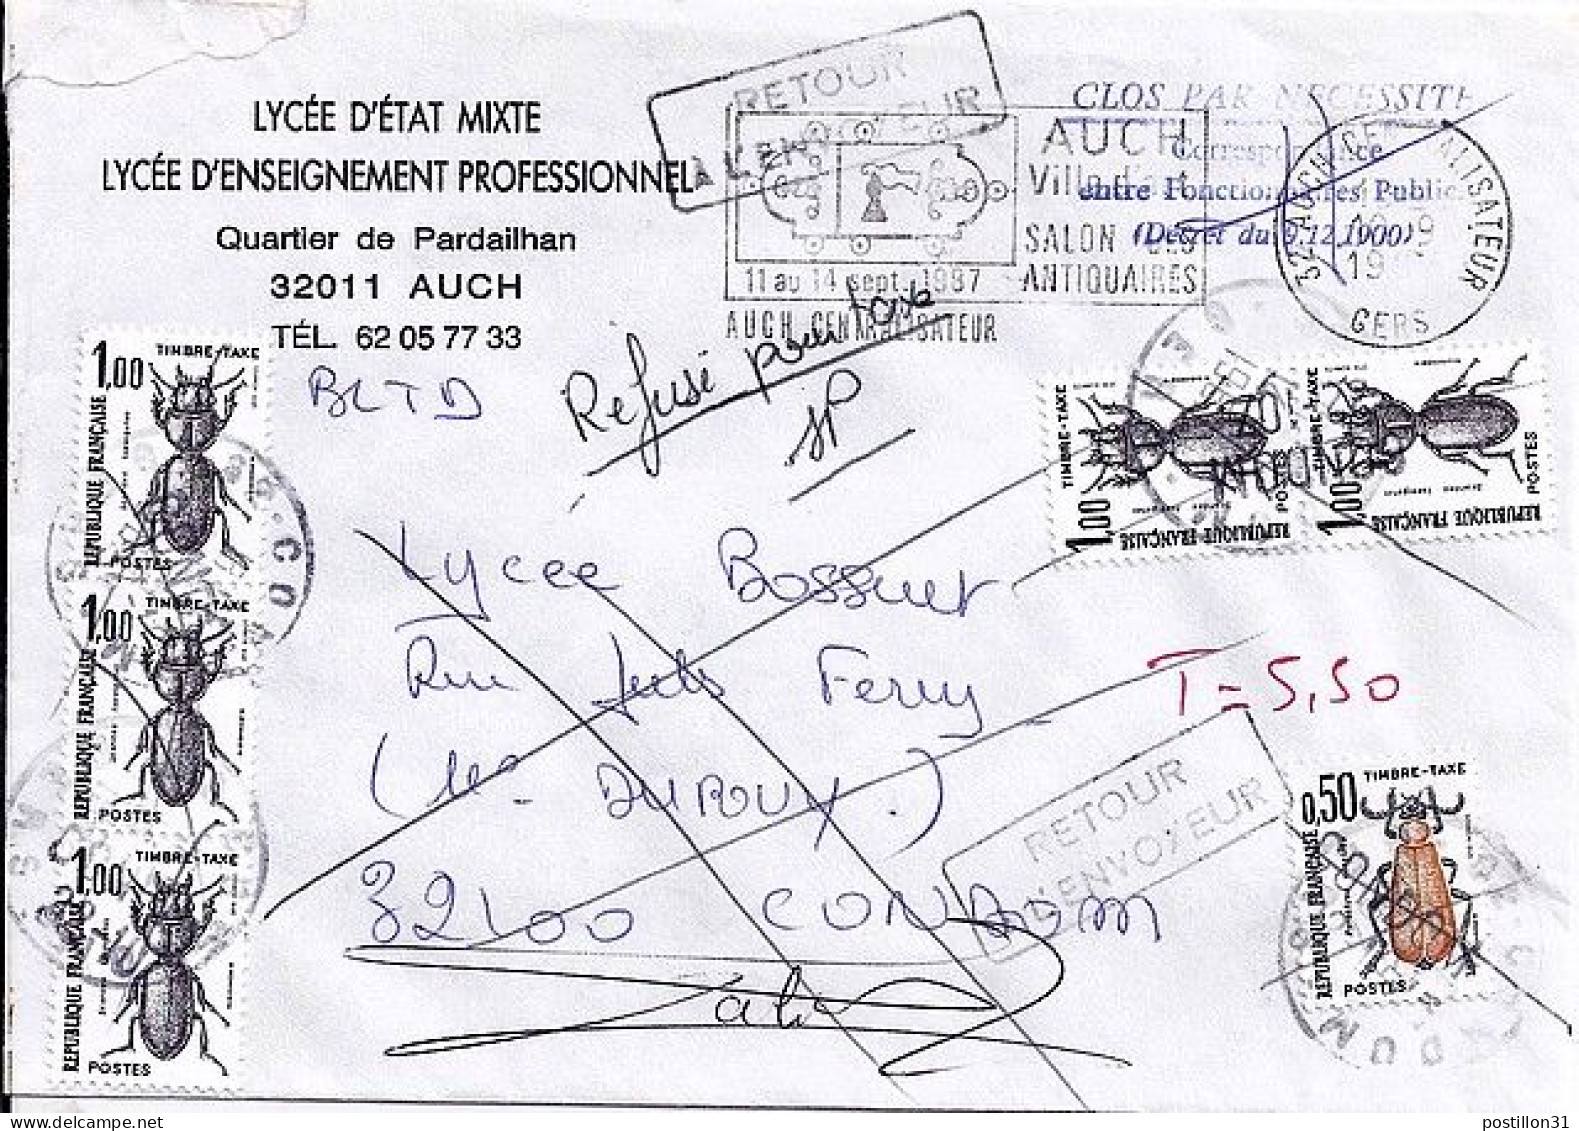 LYCÉE D'ÉTAT MIXTE
LYCÉE D'ENSEIGNEMENT PROFESSIONNEL
Quartier de Pardailhan
32011 AUCH
TÉL. 62 05 77 33
BLTD
RETOUR
A L'ENVOYEUR
11 au 14 sept. 1987
AUCH CENTRALISATEUR
AUCH
Ville d'art
SALON DES
ANTIQUAIRES
CLOS PAR NECESSITE
Correspondance
entre Fonctionnaires Publics
(Décret du 9.12.1900)
32 AUCH CENTRALISATEUR
19
GERS
Refusé pour taxe
1,00 TIMBRE-TAXE
RÉPUBLIQUE FRANÇAISE
POSTES
1,00 TIMBRE-TAXE
RÉPUBLIQUE FRANÇAISE
POSTES
1,00 TIMBRE-TAXE
RÉPUBLIQUE FRANÇAISE
POSTES
1,00 TIMBRE-TAXE
RÉPUBLIQUE FRANÇAISE
POSTES
1,00 TIMBRE-TAXE
RÉPUBLIQUE FRANÇAISE
POSTES
Lycee Bossuet
Rue Jules Ferry
(Mr DUROUX.)
32100 CONDOM
T = 5,50
RETOUR
A L'ENVOYEUR
0,50 TIMBRE-TAXE
RÉPUBLIQUE FRANÇAISE
POSTES
postillon31